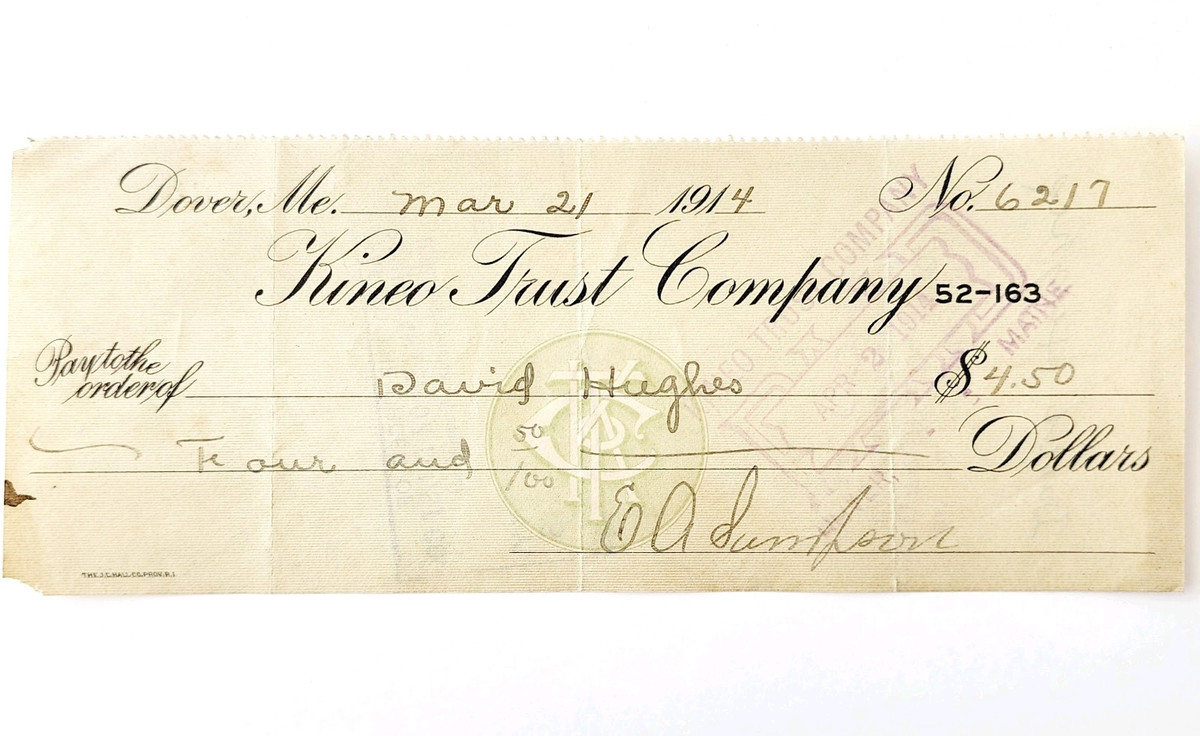 Dover, Me. Mar 21 1914 No. 6217
Kineo Trust Company 52-163
Pay to the
order of David Hughes $4.50
Four and 50/100 Dollars
E A Sampson
THE J.C. HALL CO. PROV. R.I.
KINEO TRUST COMPANY
PAID
APR 2 1914
MAINE
KTC